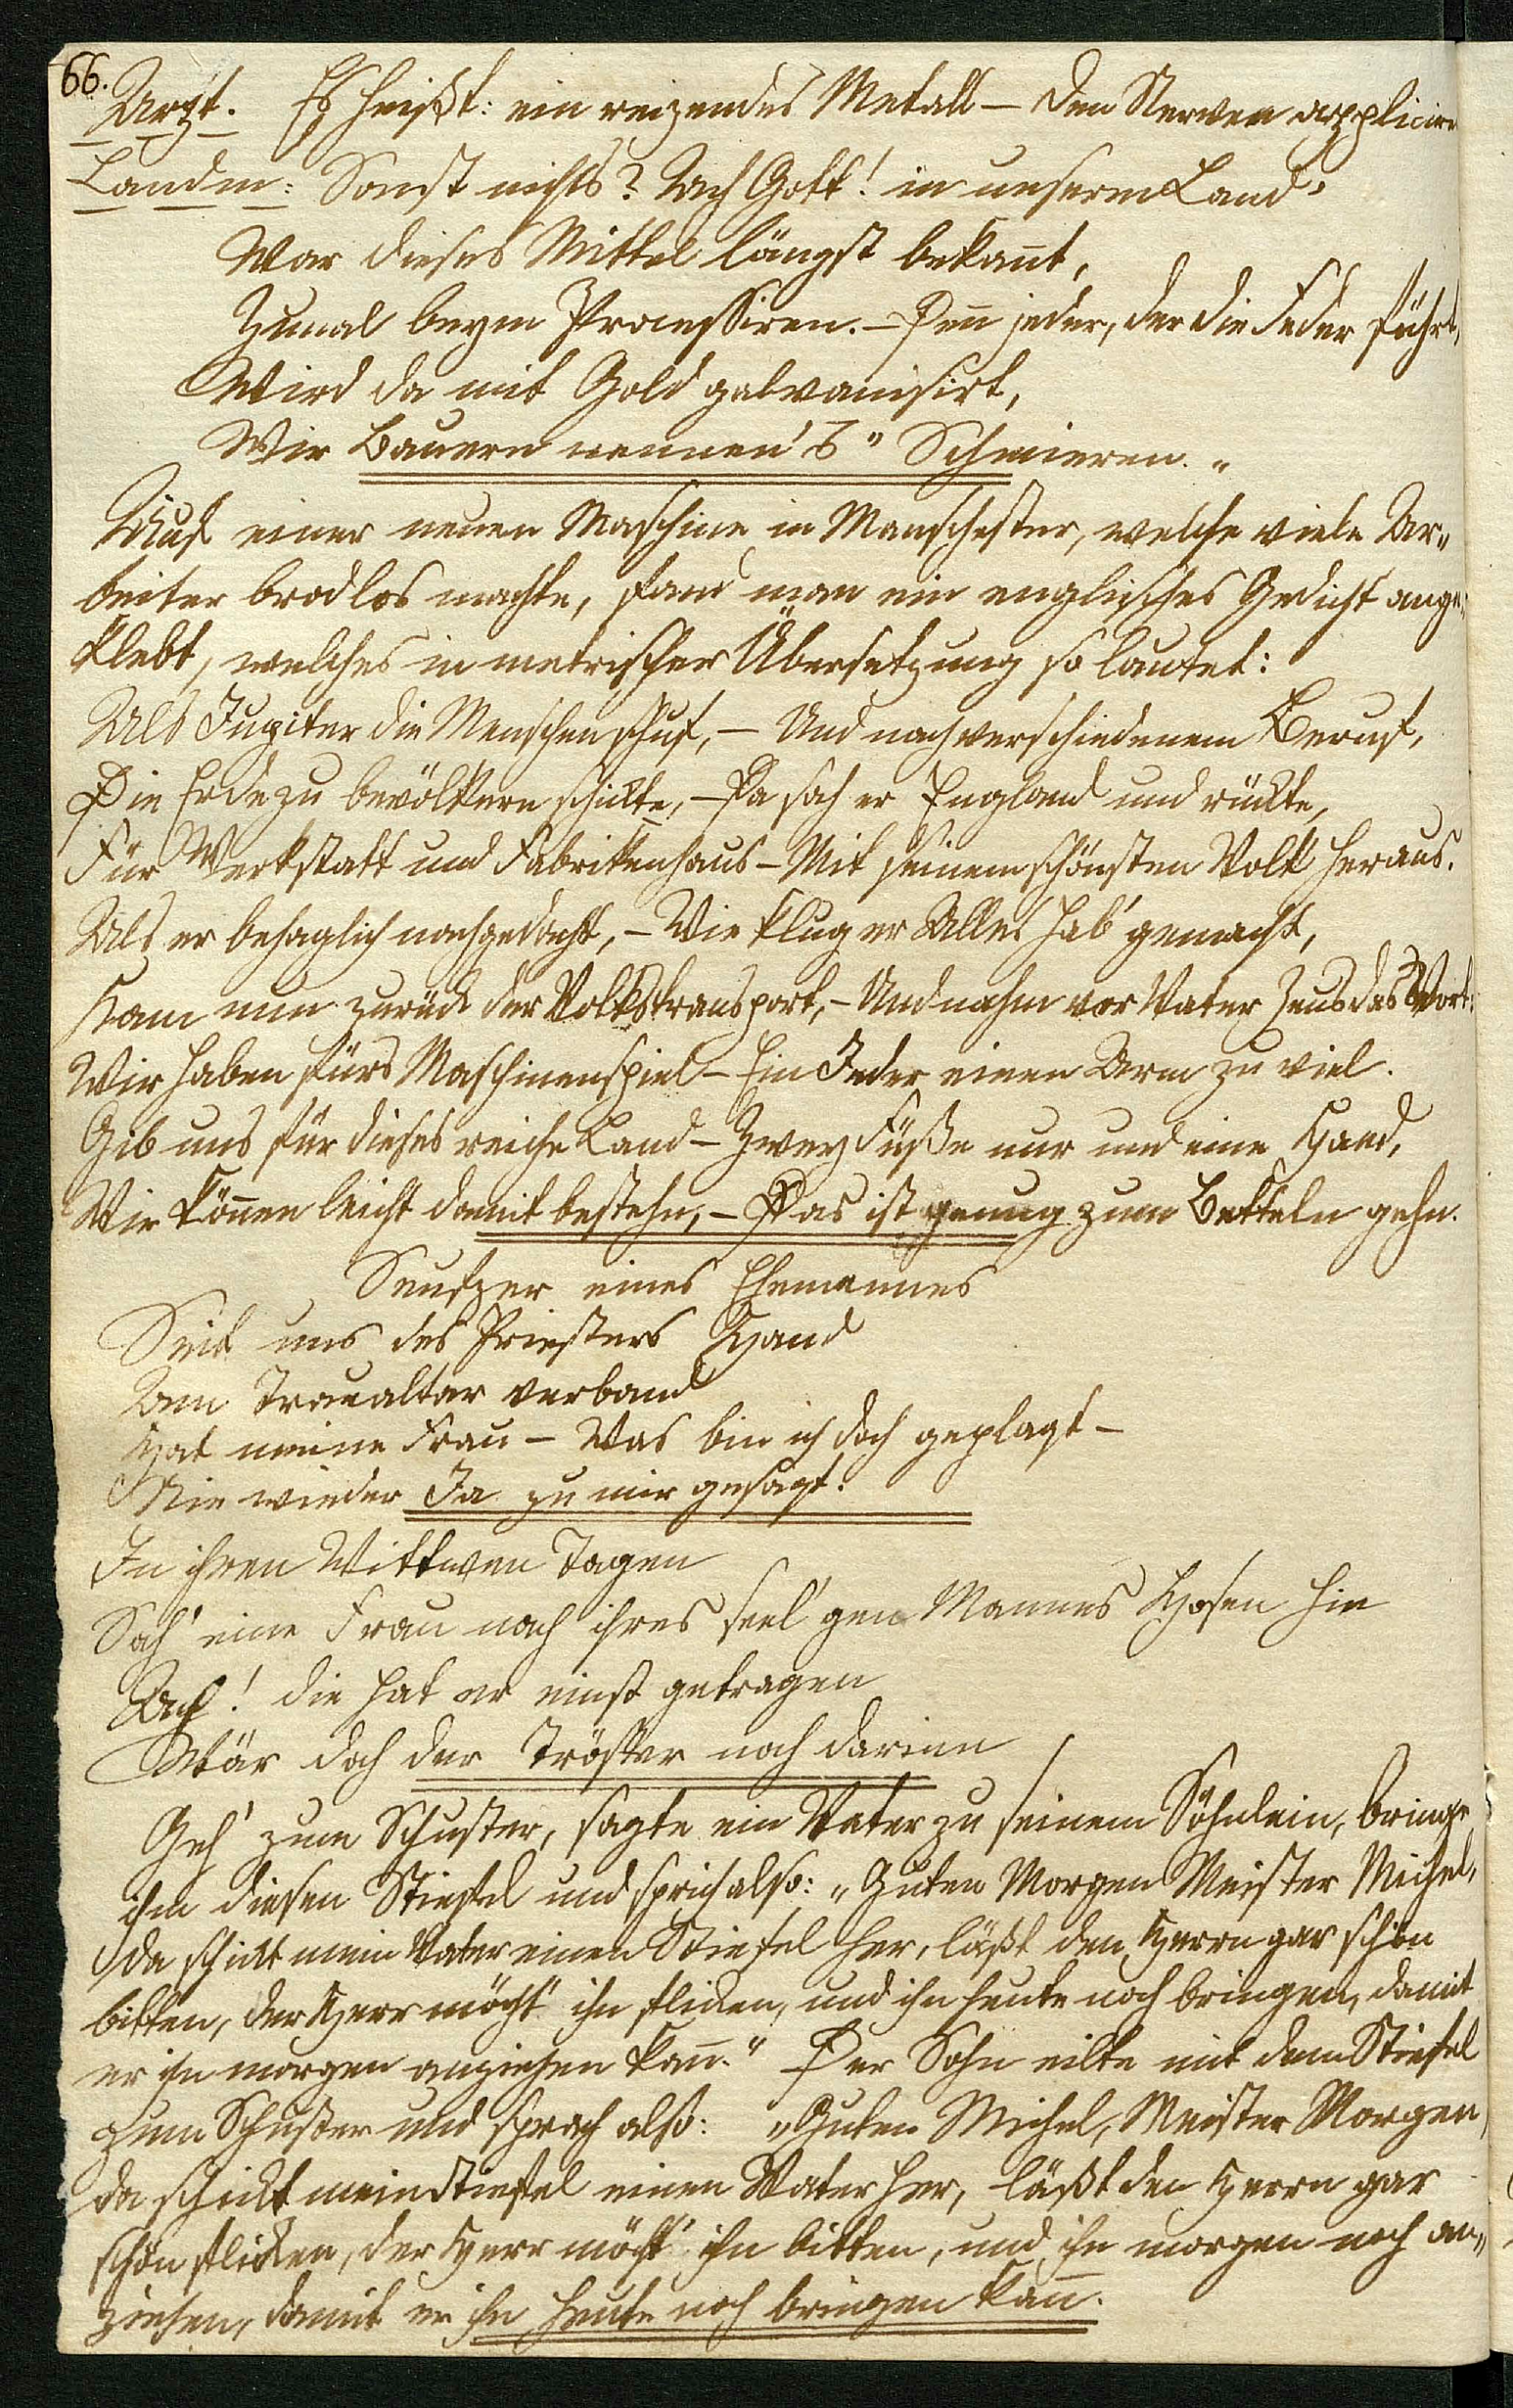 66.
Arzt. Es heißt: ein reizendes Metall – den Nerven appliciren
Landm: Sonst nichts? Ach Gott! in unserm Land'
War dieses Mittel längst bekan̄t,
Zumal beym Processiren. – Den̄ jeder, der die Feder führt,
Wird da mit Gold galvanisirt,
Wir Bauern nennen's "Schmieren."
Auf einer neuen Maschine in Manschester, welche viele Ar„
beiter brodlos machte, fand man ein englisches Gedicht ange„
klebt, welches in metrischer Übersetzung so lautet:
Als Jupiter die Menschen schuf, – Und nach verschiedenem Beruf,
Die Erde zu bevölkern schickte, – Da sah er England und rückte,
Für Werkstatt und Fabrikenhaus – Mit seinem schönsten Volk heraus.
Als er behaglich nachgedacht, – Wie klug er Alles hab' gemacht,
Kam nun zurück der Volkstransport, – Und nahm vor Vater Zeus das Wort:
Wir haben fürs Maschinenspiel – Ein Jeder einen Arm zu viel.
Gib uns für dieses reiche Land – Zwey Füße nur und eine Hand,
Wir kön̄en leicht damit bestehn, – Das ist genug zum Betteln gehn.
Seufzer eines Ehemannes
Seit uns des Priesters Hand
Am Traualtar verband
Hat meine Frau – Was bin ich doch geplagt –
Nie wieder Ja zu mir gesagt.
In ihren Wittwen Tagen
Sah' eine Frau nach ihres seel'gen Mannes Hosen hin
Ach! die hat er einst getragen
Wär doch der Tröster noch darinn
Geh' zum Schuster, sagte ein Vater zu seinem Söhnlein, bringe
ihm diesen Stiefel und sprich also: „Guten Morgen Meister Michel,
da schickt mein Vater einen Stiefel her, läßt den Herrn gar schön
bitten, der Herr möcht' ihn flicken, und ihn heute noch bringen, damit
er ihn morgen anziehen kan̄." Der Sohn eilte mit dem Stiefel
zum Schuster und sprach also: „Guten Michel, Meister Morgen,
da schickt mein Stiefel einen Vater her, läßt den Herrn gar
schön flicken, der Herr möcht' ihn bitten, und ihn morgen noch an„
ziehen, damit er ihn heute noch bringen kan̄.